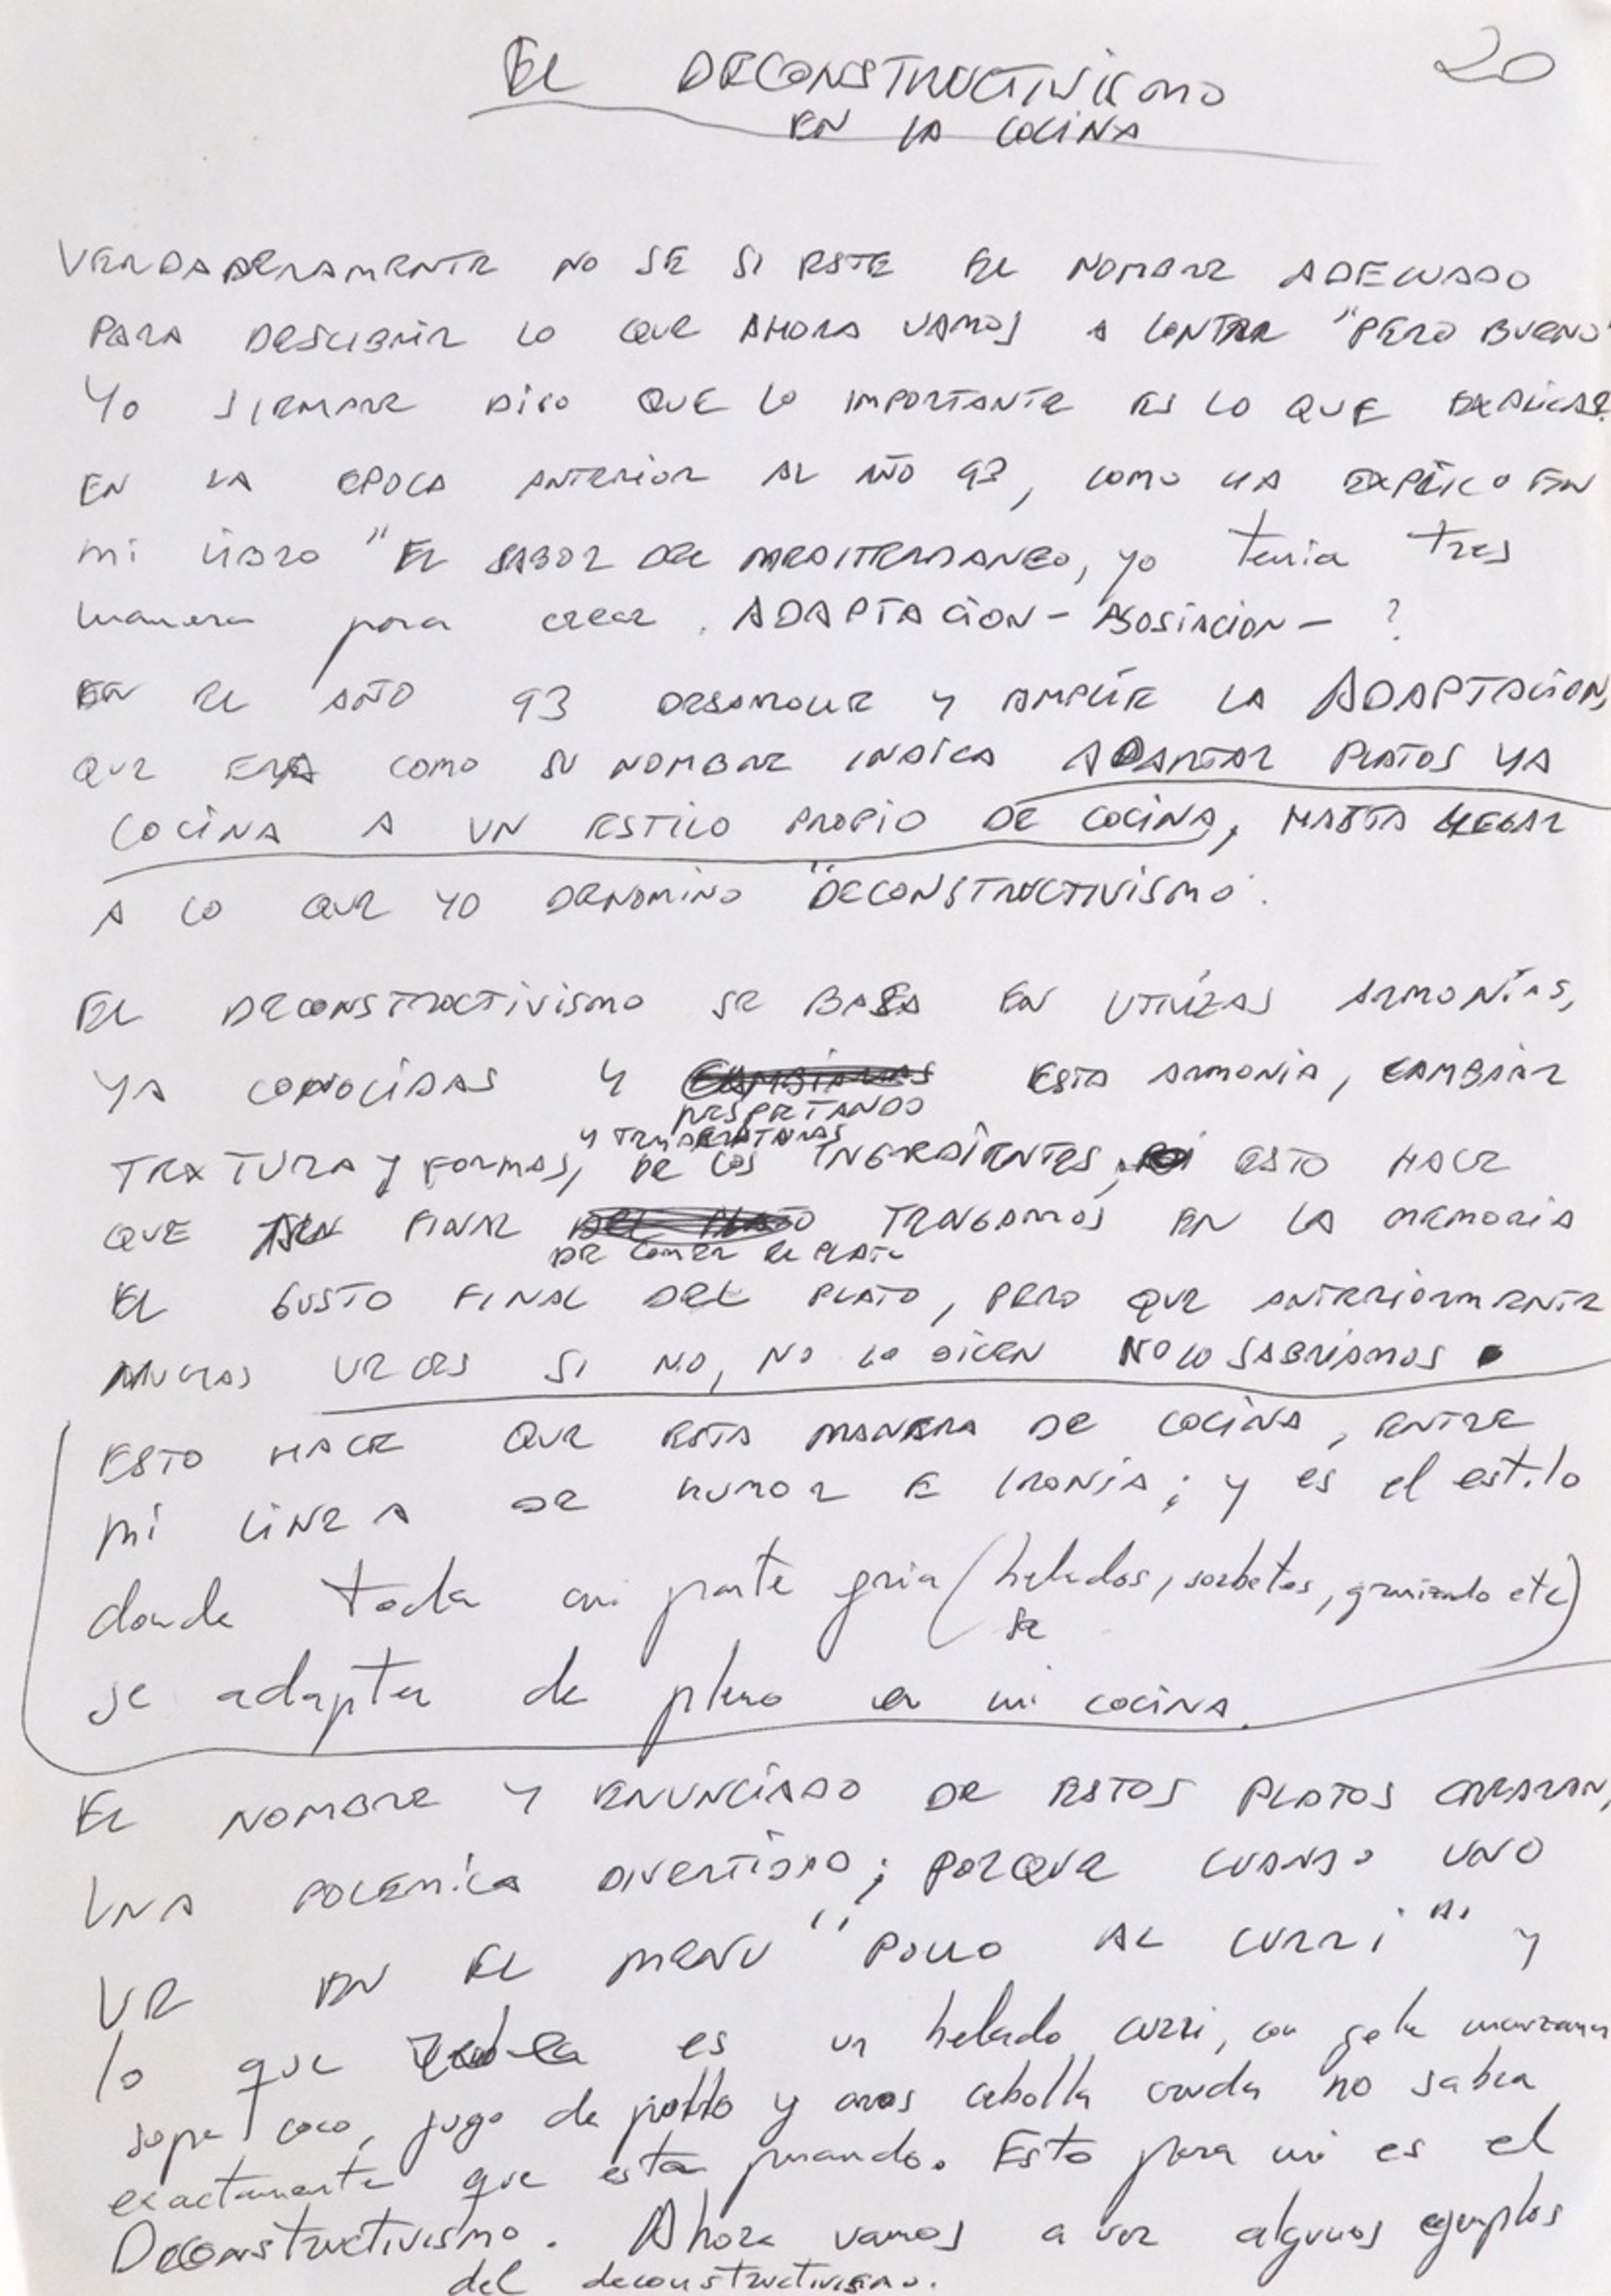 20
EL DECONSTRUCTIVISMO
EN LA COCINA
VERDADERAMENTE NO SE SI ESTE EL NOMBRE ADECUADO
PARA DESCUBRIR LO QUE AHORA VAMOS A CONTAR "PERO BUENO"
YO SIEMPRE DIGO QUE LO IMPORTANTE ES LO QUE EXPLICAS.
EN LA EPOCA ANTERIOR AL AÑO 93, COMO YA EXPLICO EN
mi LIBRO "EL SABOR DEL MEDITERRANEO, yo tenia tres
manera para crear. ADAPTACION - ASOSIACION - ?
EN EL AÑO 93 DESARROLLE Y AMPLIE LA ADAPTACION,
QUE ERA COMO SU NOMBRE INDICA ADAPTAR PLATOS YA
COCINA A UN ESTILO PROPIO DE COCINA, HASTA LLEGAR
A LO QUE YO DENOMINO "DECONSTRUCTIVISMO".
EL DECONSTRUCTIVISMO SE BASA EN UTILIZAS ARMONIAS,
YA CONOCIDAS Y ESTA ARMONIA, CAMBIAR
RESPETANDO
Y TEMPERATURAS
TEXTURA Y FORMAS, DE LOS INGREDIENTES, ESTO HACE
QUE FINAL TENGAMOS EN LA MEMORIA
DE COMER EL PLATO
EL GUSTO FINAL DEL PLATO, PERO QUE ANTERIORMENTE
MUCHAS VECES SI NO, NO LO DICEN NO LO SABRIAMOS.
ESTO HACE QUE ESTA MANERA DE COCINA, ENTRE
MI LINEA DE HUMOR E IRONIA; y es el estilo
donde toda mi parte fria (helados, sorbetes, granizado etc)
se
se adapta de pleno en mi COCINA.
EL NOMBRE Y ENUNCIADO DE ESTOS PLATOS CREARAN,
UNA POLEMICA DIVERTIDA; PORQUE CUANDO UNO
VE EN EL MENU "POLLO AL CURRI" Y
lo que es un helado curri, con gele manzana
sopa coco, jugo de pollo y aros cebolla cruda no sabra
exactamente que esta pasando. Esto para mi es el
Deconstructivismo. Ahora vamos a ver algunos ejemplos
del deconstructivismo.